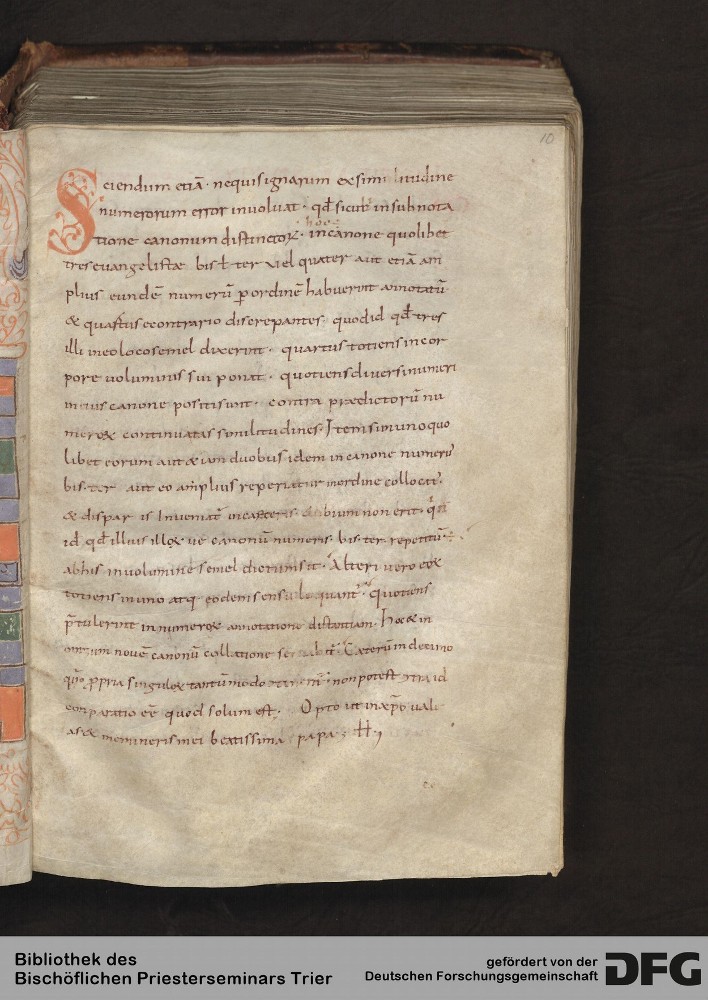 10
Sciendum etiā · nequis ignarum ex simi litudine
numerorum error involvat · qđ sicut in subnota
hoc ÷
tione canonum distinctoꝝ · in canone quolibet
tres euangelistae bis ł ter uel quater aut etiā am
plius eundē numerū ꝑ ordinē habuerint annotatū
& quartus econtrario discrepantes · quod id qđ tres
illi in eo loco semel dixerint · quartus totiens in cor
pore uoluminis sui ponat · quotiens diuersi numeri
in eius canone positi sunt · contra praedictorū nu
meroꝝ continuatas similitudines · Item si in uno quo
libet eorum aut &iam duobus idem in canone numerus
bis · ter aut eo amplius reperiatur in ordine collocat'
& dispar is Inueniat' in caeteris · dubium non erit · qd
id qđ illius illoꝝ ue canonū numeris · bis · ter · repetitū ÷
ab his in uolumine semel dictum sit · Alteri uero eoꝝ
totiens in uno atq · eodem sensu loquant' · quotiens
p̄tulerint in numeroꝝ annotatione distantiam · Hoc & in
omnium nouē canonū collatione seruabit' · Caeterū in decimo
quo ꝓpria singuloꝝ tantūmodo non potest intra id
conparatio eē quod solum est · Opto ut in xp̄o uale
as & memineris mei beatissime papa
Bibliothek des
Bischöflichen Priesterseminars Trier
gefördert von der
Deutschen Forschungsgemeinschaft
DFG